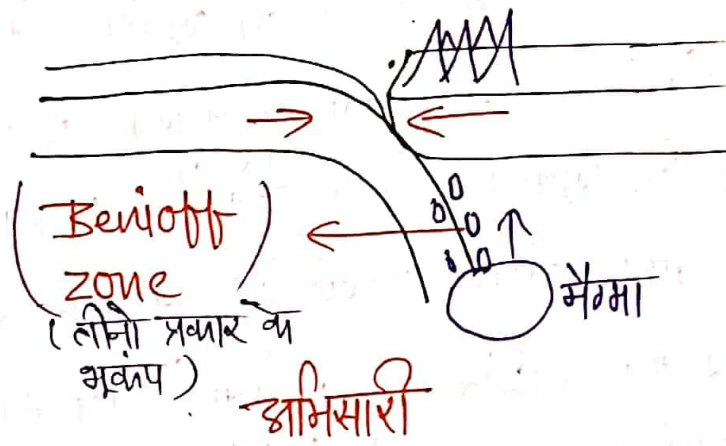 (Benioff
zone)
(तीनो प्रकार के
भूकंप)
मैग्मा
अभिसारी